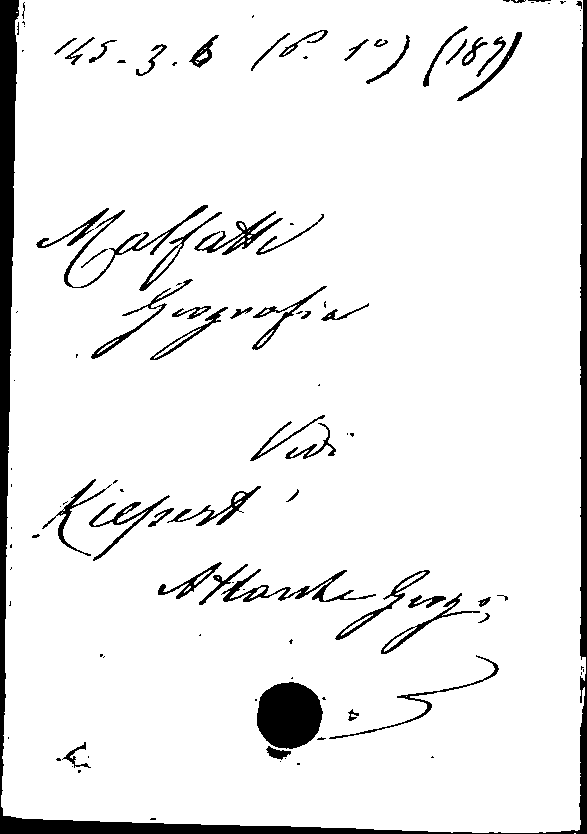 145.3.6 (P. 1º) (187)
Malfatti
Geografia
Vedi
Kiepert
Atlante Geog: